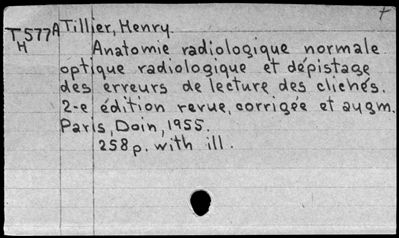 T577A Tillier, Henry.
H
Anatomie radiologique normale
optique radiologique et dépistage
des erreurs de lecture des clichés.
2-e édition revue, corrigée et augm.
Paris, Doin, 1955.
258p. with ill.